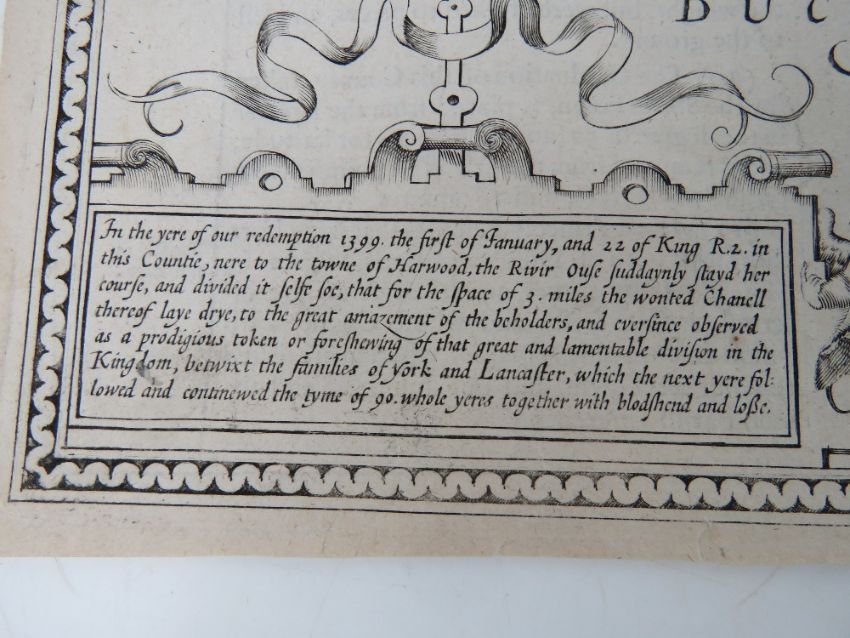 BUC
In the yere of our redemption 1399. the first of Ianuary, and 22 of King R.2. in
this Countie, nere to the towne of Harwood, the Rivir Ouse suddaynly stayd her
course, and divided it selfe soe, that for the space of 3. miles the wonted Chanell
thereof laye drye, to the great amazement of the beholders, and eversince observed
as a prodigious token or foreshewing of that great and lamentable division in the
Kingdom, betwixt the families of york and Lancaster, which the next yere fol:
lowed and continewed the tyme of 90. whole yeres together with blodshend and losse.